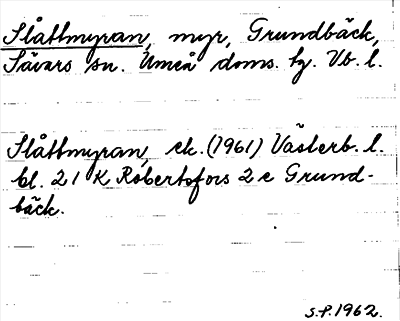 Slåttmyran, myr, Grundbäck,
Sävars sn. Umeå doms. tg. Vb. l.
Slåttmyran, ek. (1961) Västerb. l.
bl. 21 K Robertsfors 2 e Grund-
bäck.
S.P. 1962.